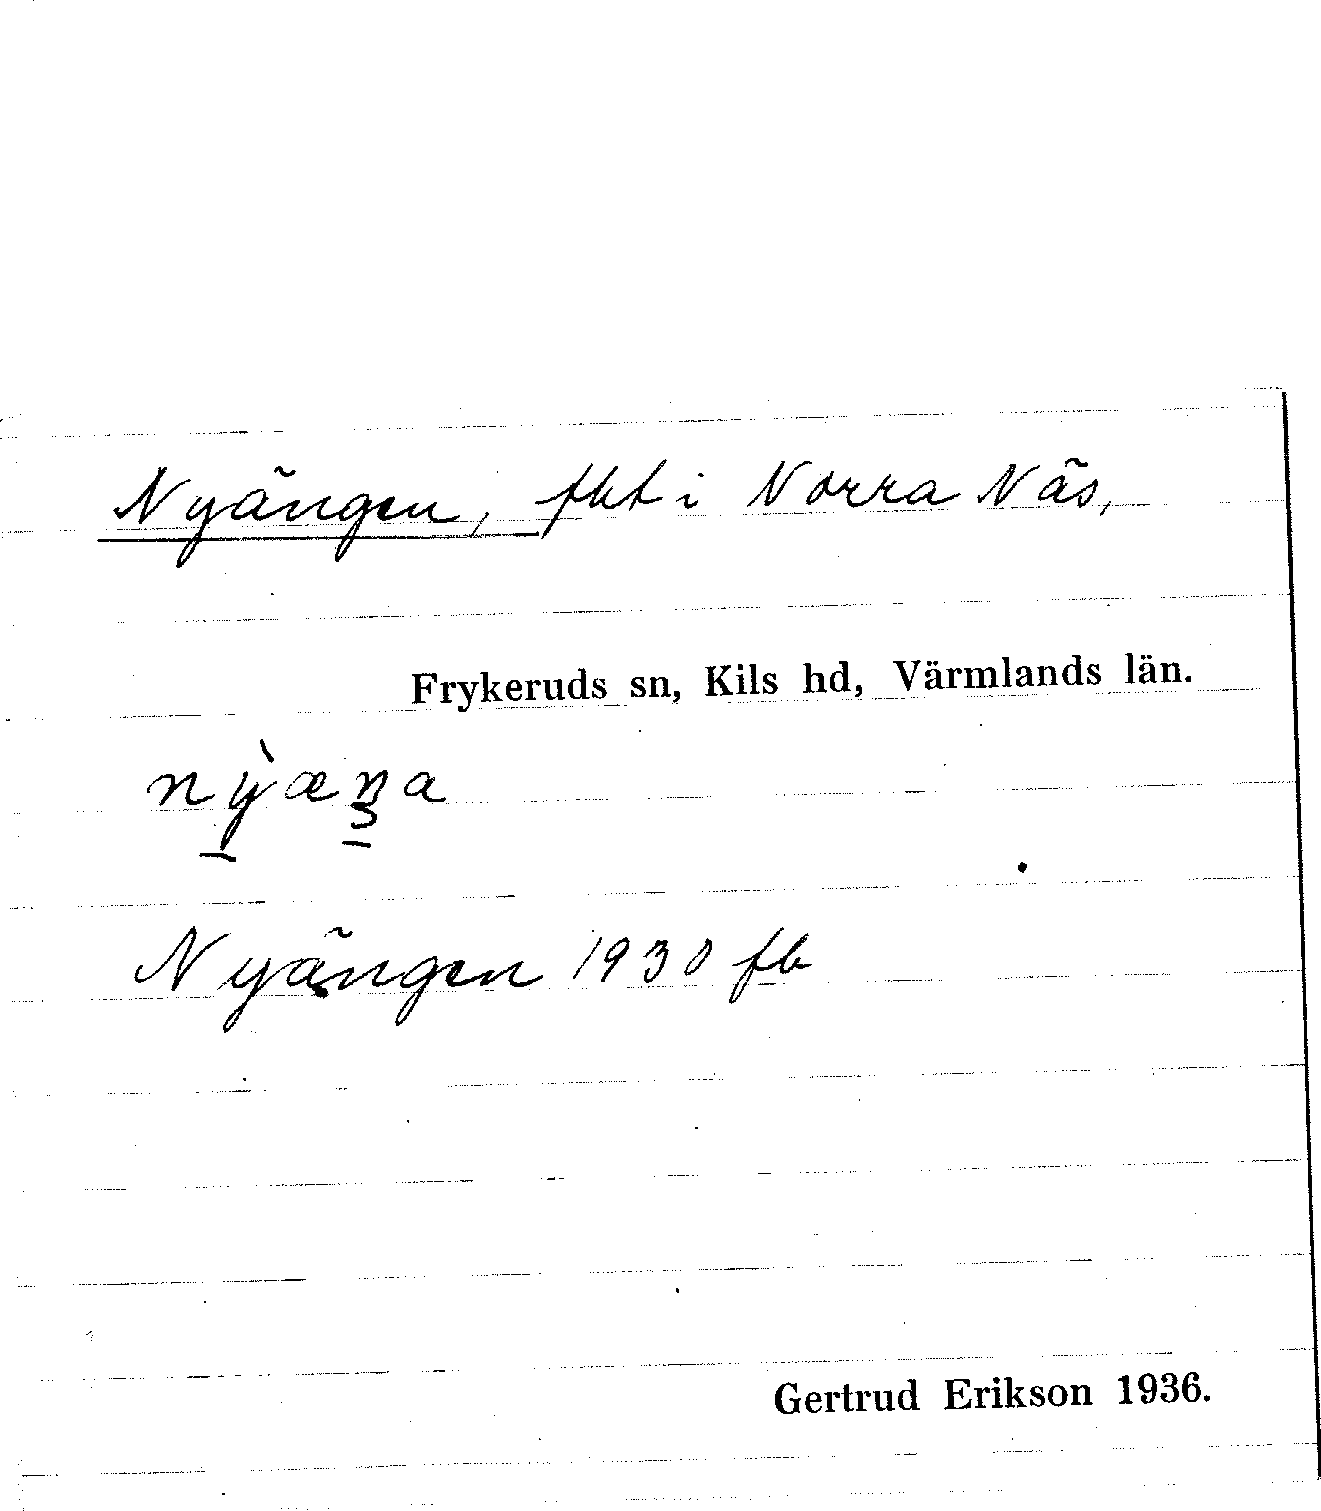 Nyängen, fht i Norra Näs,
Frykeruds sn, Kils hd, Värmlands län.
Nyängen 1930 fb
Gertrud Erikson 1936.